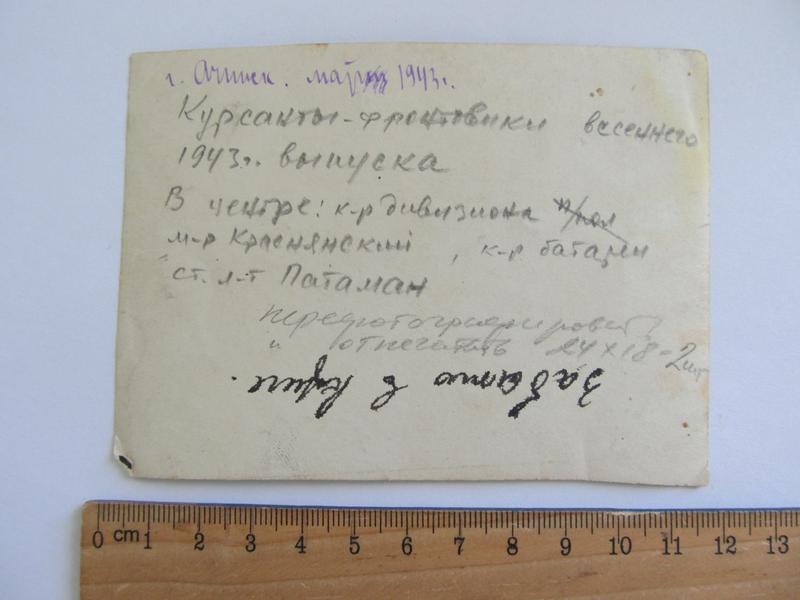 г. Ачинск. март 1943г.
Курсанты-фронтовики весеннего
1943г. выпуска
В центре: к-р дивизиона п/пол
м-р Краснянский, к-р батареи
ст. л-т Патаман
перефотографировать
и отпечатать 24×18-2шт
в
0 cm 1 2 3 4 5 6 7 8 9 10 11 12 13